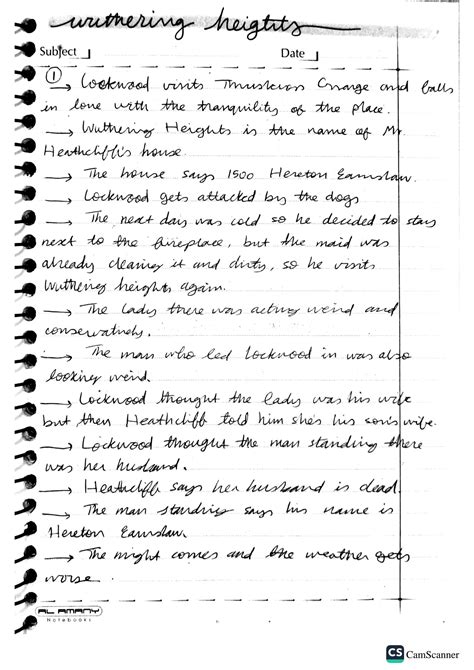 wuthering heights
Subject
Date
① → Lockwood visits Thrusscross Grange and falls
in love with the tranquility of the place.
→ Wuthering Heights is the name of Mr.
Heathcliff's house.
→ The house says 1500 Hereton Earnshaw.
→ Lockwood gets attacked by the dogs
→ The next day was cold so he decided to stay
next to the fireplace, but the maid was
already cleaning it and dirty, so he visits
Wuthering heights again.
→ The lady there was acting weird and
conservatively.
→ The man who led Lockwood in was also
looking weird.
→ Lockwood thought the lady was his wife
but then Heathcliff told him she's his son's wife.
→ Lockwood thought the man standing there
was her husband.
→ Heathcliff says her husband is dead.
→ The man standing says his name is
Hereton Earnshaw.
→ The night comes and the weather gets
worse.
AL AMANY
Notebooks
CS CamScanner